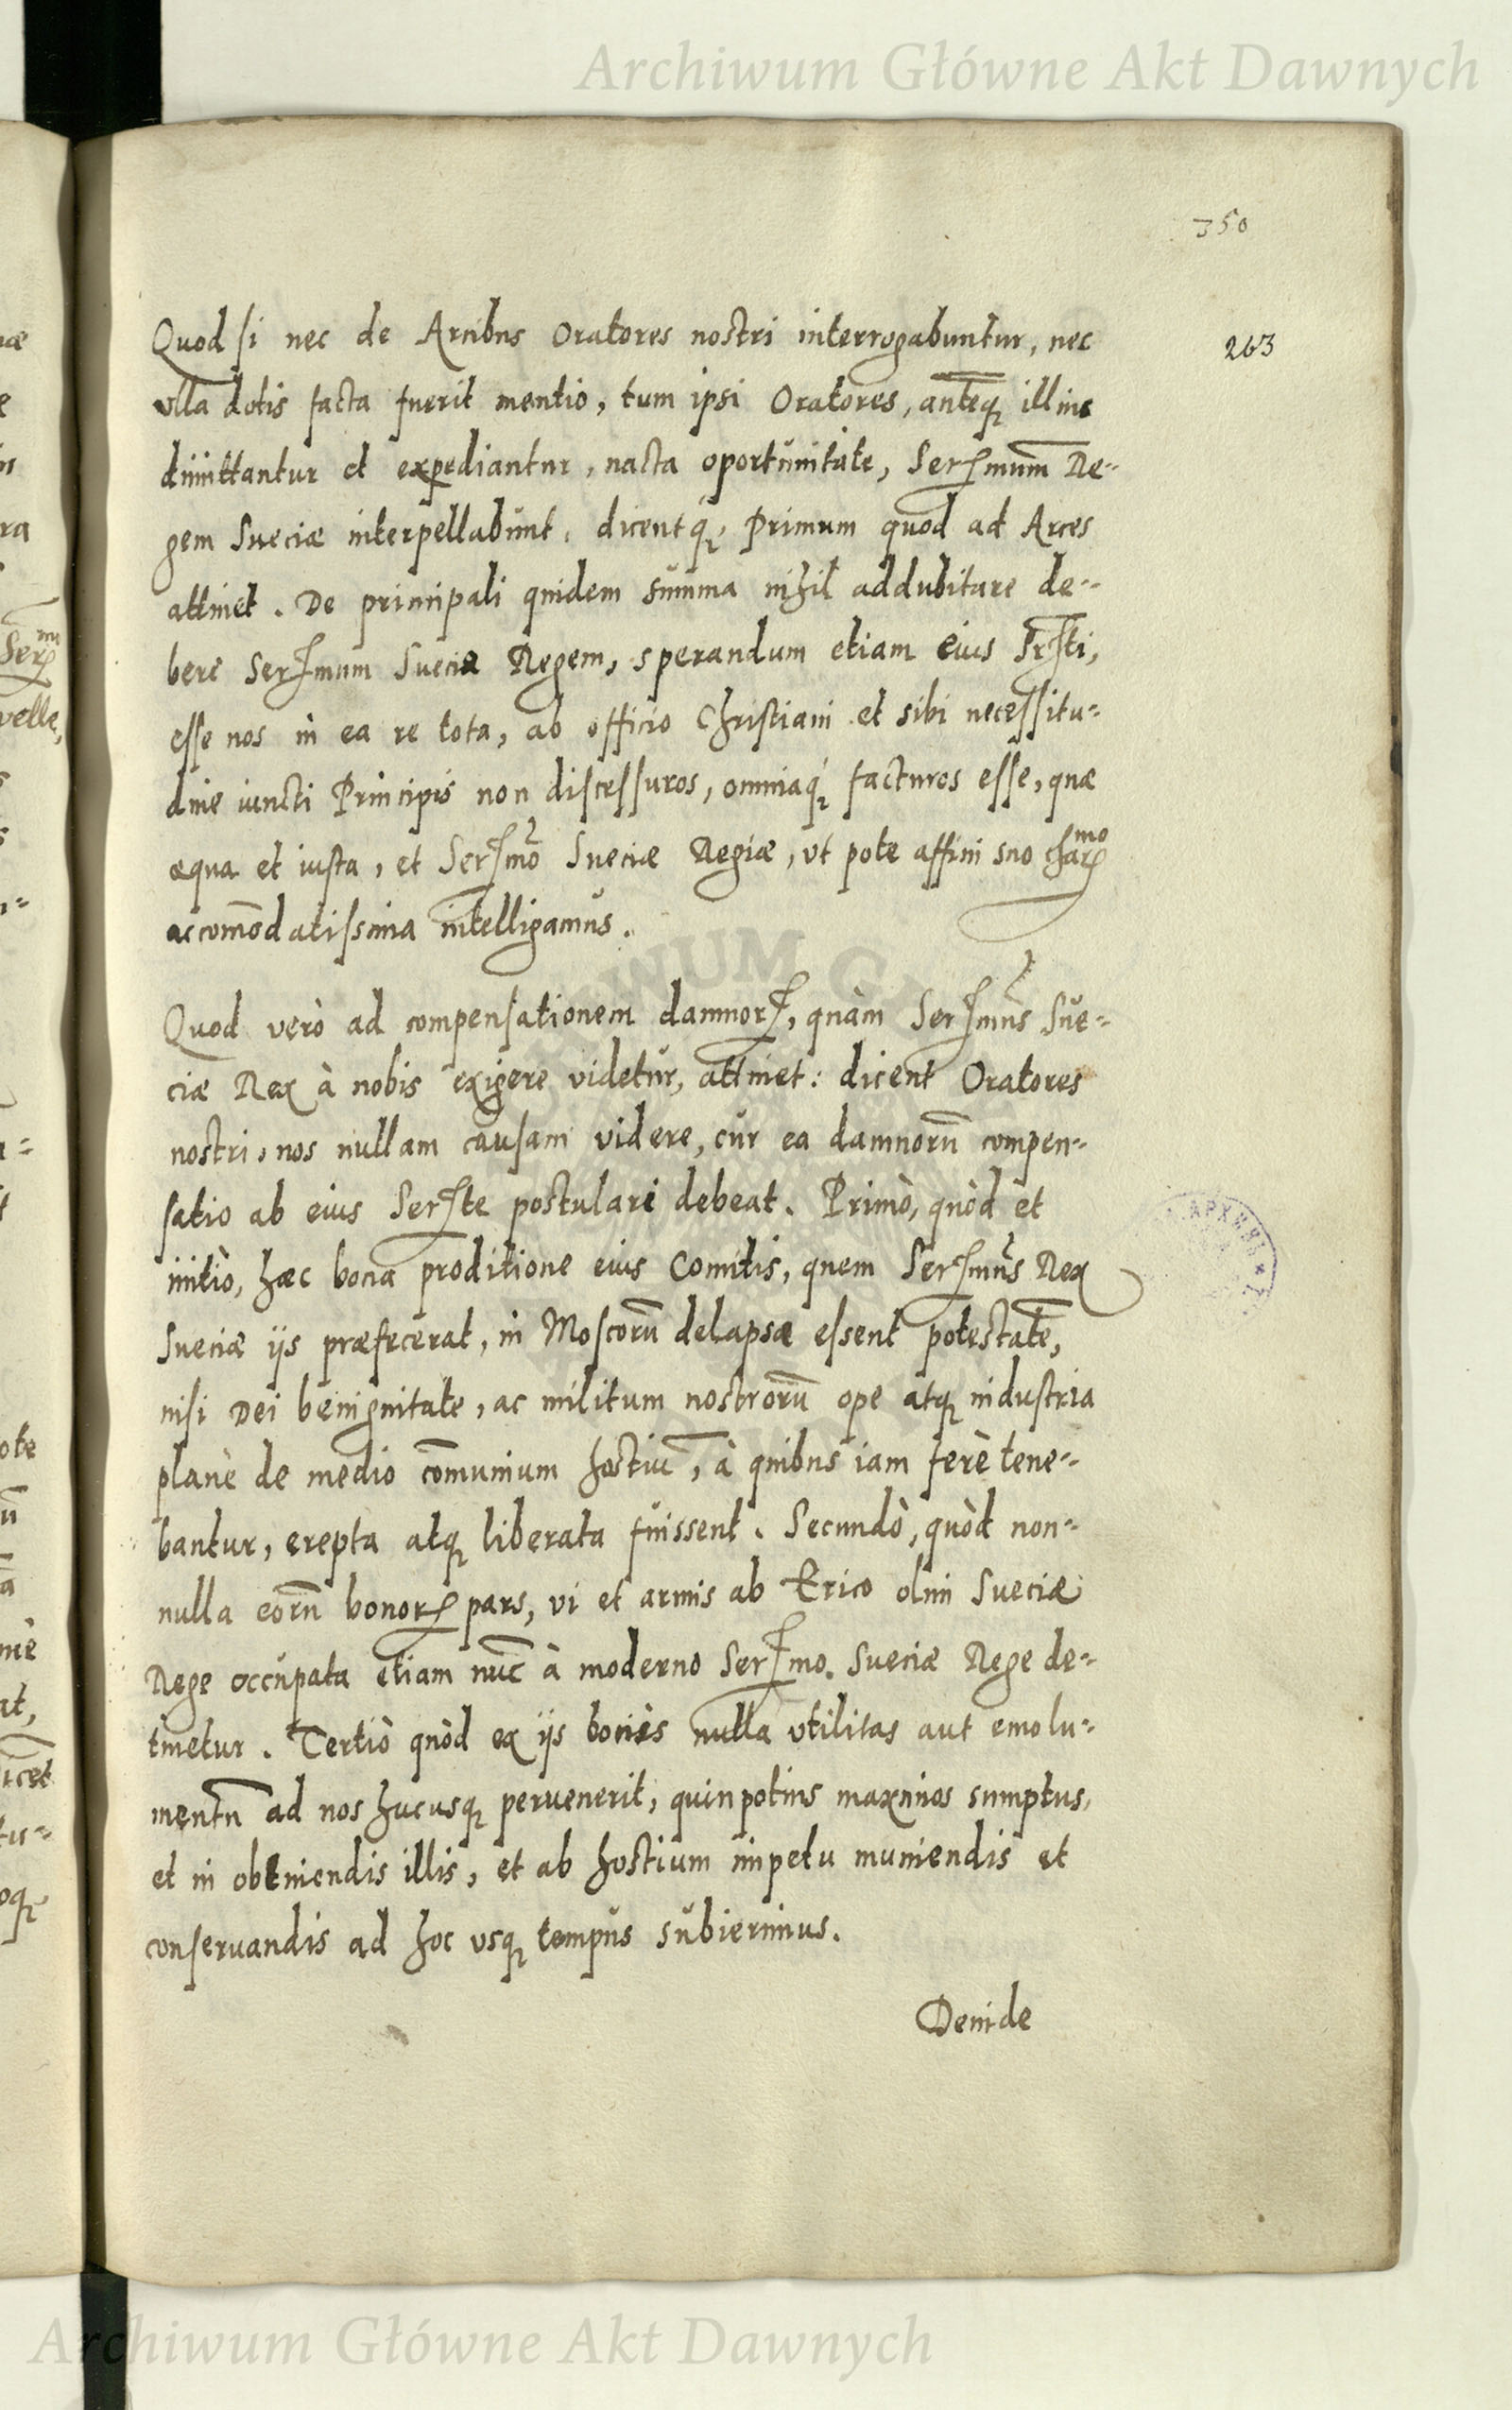 Archiwum Główne Akt Dawnych
350
263
Quod si nec de Arcibus Oratores nostri interrogabuntur, nec
vlla dotis facta fuerit mentio, tum ipsi Oratores, anteq̃ illinc
dimittantur et expediantur, nacta oportunitate, Serꝭmum Re-
gem Sueciæ interpellabunt, dicentq́ꝫ Primum quod ad Arces
attinet. De principali quidem summa nihil addubitare de-
bere Serꝭmum Sueciæ Regem, sperandum etiam eius Srꝭti,
esse nos in ea re tota, ab officio Christiani et sibi necessitu-
dine iuncti Principis non discessuros, omniaq́ꝫ facturos esse, quæ
æqua et iusta, et Serꝭmo Sueciæ Regiæ, vt pote affini suo charꝭmo
accom̃odatissima intelligamus.
Quod verò ad compensationem damnorꝭ, quàm Serꝭmus Sue-
ciæ Rex à nobis exigere videtur, attinet: dicent Oratores
nostri, nos nullam causam videre, cur ea damnorũ compen-
satio ab eius Serꝭte postulari debeat. Primò, quòd et
initiò, hæc bona proditione eius Comitis, quem Serꝭmus Rex
Sueciæ ijs præfecerat, in Moscorũ delapsæ essent potestatẽ,
nisi Dei benignitate, ac militum nostrorũ ope atqꝫ industria
planè de medio com̃unium hostiũ, à quibus iam ferè tene-
bantur, erepta atqꝫ liberata fuissent. Secundò, quòd non-
nulla eorũ bonorꝭ pars, vi et armis ab Erico olim Sueciæ
Rege occupata etiam nũc à moderno Serꝭmo. Sueciæ Rege de-
tinetur. Tertiò quòd ex ijs bonis nulla vtilitas aut emolu-
mentũ ad nos hucusqꝫ peruenerit, quin potius maximos sumptus,
et in obtiniendis illis, et ab hostium impetu muniendis et
conseruandis ad hoc vsqꝫ tempus subierimus.
Deinde
Archiwum Główne Akt Dawnych